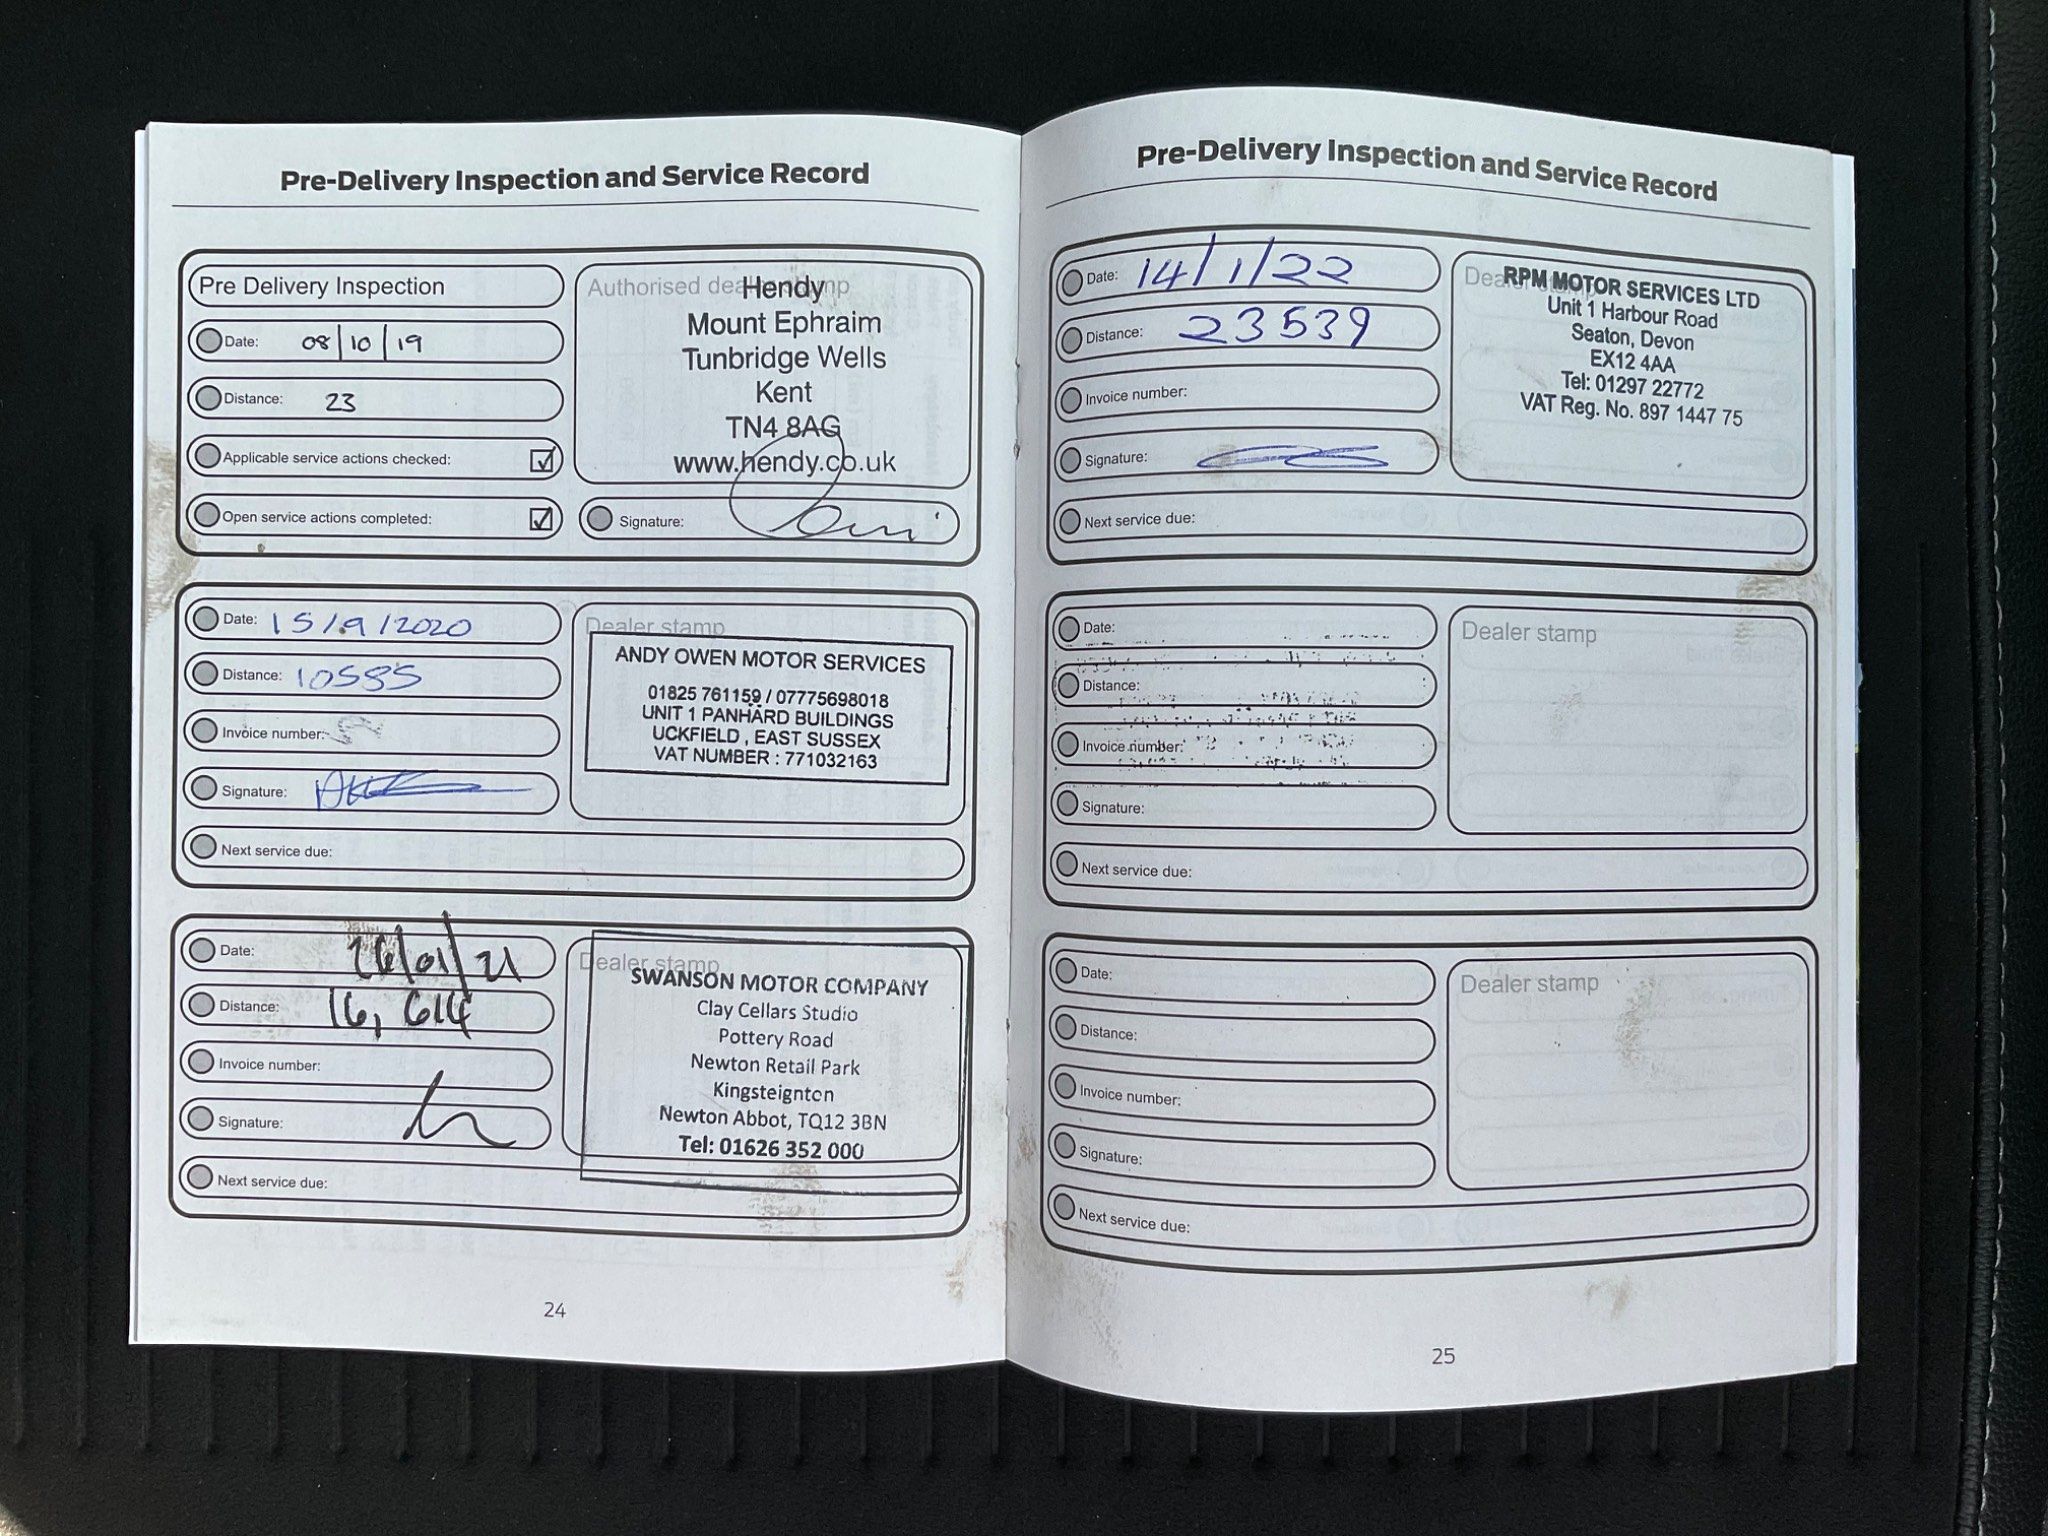 Pre-Delivery Inspection and Service Record
Pre Delivery Inspection
Date: 08/10/19
Distance: 23
Applicable service actions checked:
Open service actions completed:
Authorised dealer stamp
Hendy
Mount Ephraim
Tunbridge Wells
Kent
TN4 8AG
www.hendy.co.uk
Signature:
Date: 15/9/2020
Distance: 10585
Invoice number:
Signature:
Next service due:
Dealer stamp
ANDY OWEN MOTOR SERVICES
01825 761159 / 07775698018
UNIT 1 PANHARD BUILDINGS
UCKFIELD , EAST SUSSEX
VAT NUMBER : 771032163
Date: 26/01/21
Distance: 16, 614
Invoice number:
Signature:
Next service due:
Dealer stamp
SWANSON MOTOR COMPANY
Clay Cellars Studio
Pottery Road
Newton Retail Park
Kingsteignton
Newton Abbot, TQ12 3BN
Tel: 01626 352 000
24
Pre-Delivery Inspection and Service Record
Date: 14/1/22
Distance: 23539
Invoice number:
Signature:
Next service due:
Dealer stamp
RPM MOTOR SERVICES LTD
Unit 1 Harbour Road
Seaton, Devon
EX12 4AA
Tel: 01297 22772
VAT Reg. No. 897 1447 75
Date:
Distance:
Invoice number:
Signature:
Next service due:
Dealer stamp
Date:
Distance:
Invoice number:
Signature:
Next service due:
Dealer stamp
25